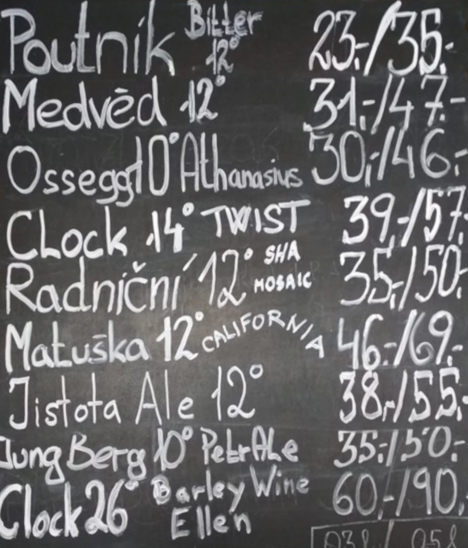 Poutník Bitter 12° 23.-/35.-
Medvěd 12° 31,-/47.-
Ossegg 10° Athanasius 30,-/46.-
CLock 14° TWIST 39,-/57,
Radniční 12° SHA MOSAIC 35,-/50,-
Matuška 12° CALIFORNIA 46.-/69.-
Jistota Ale 12° 38,-/55,-
Jung Berg 10° Petr ALe 35.-/50.-
Clock 26° Barley Wine Ellen 60,-/90,-